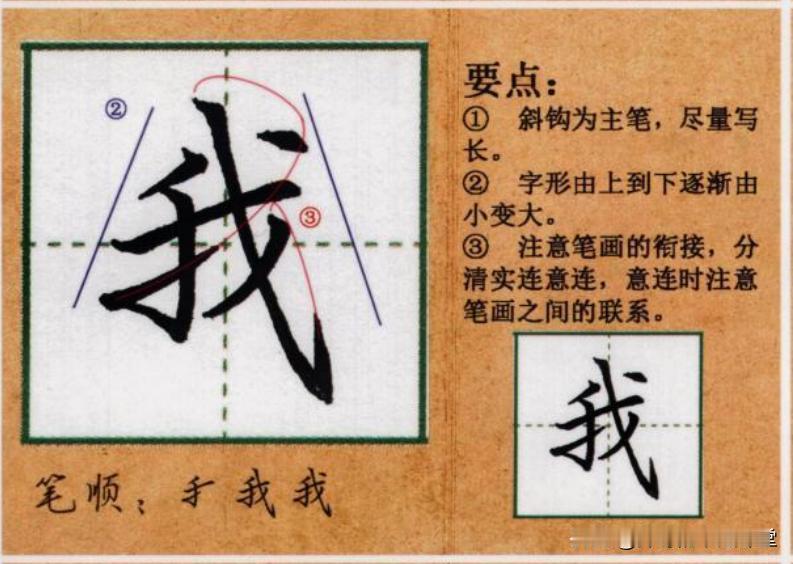 ②
我
③
要点：
① 斜钩为主笔，尽量写
长。
② 字形由上到下逐渐由
小变大。
③ 注意笔画的衔接，分
清实连意连，意连时注意
笔画之间的联系。
我
笔顺：扌我我